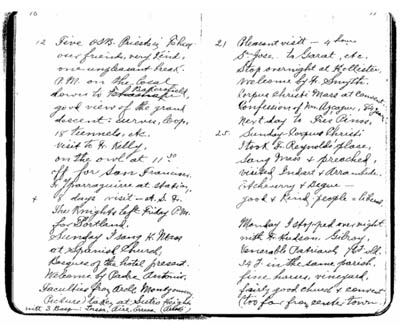 16
12 Five O.S.B. Priests
our friends, very kind,
one unpleasant freak.
P.M. on the local
down to Bakersfield,
good view of the grand
descent: curves, loop,
18 tunnels, etc.
visit to Fr. Kelly.
on the owl at 11 30
off for San Francisco.
Fr. Yparraguirre at station,
+ 8 days visit
The Knights left Friday P.M.
for Portland.
Sunday I sang H. Mass
at Spanish Church,
Basques of the hotel present.
Welcome by Padre Antonio.
Faculties from Archb. Montgomery
Picture taken at Sutro Heights
with 3
17
21 Pleasant visit - 4
S. Jose. to Garat, etc.
Stop overnight at Hollister,
Welcome by Fr. Smyth.
Corpus Christi Mass at convent
Confession of Mrs.
Next day to Tres Pinos.
25. Sunday Corpus Christi
Took Fr. Reynolds' place,
Sang Mass & preached,
visited Indart &
Etcheverry &
good & kind people
Monday I stopped overnight
with Fr. Hudson, Gilroy,
Venerable Patriarch
34 Y. in the same parish,
fine horses, vineyard,
fairly good church & convent
(too far from centre town.